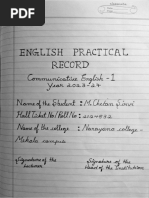 ENGLISH PRACTICAL
RECORD
Communicative English - I
Year 2023-24
Name of the Student : M. Chetan
Hall Ticket No/Roll No :
Name of the college : Narayana college -
campus
Signature of the
Signature of the
Head of the Institution